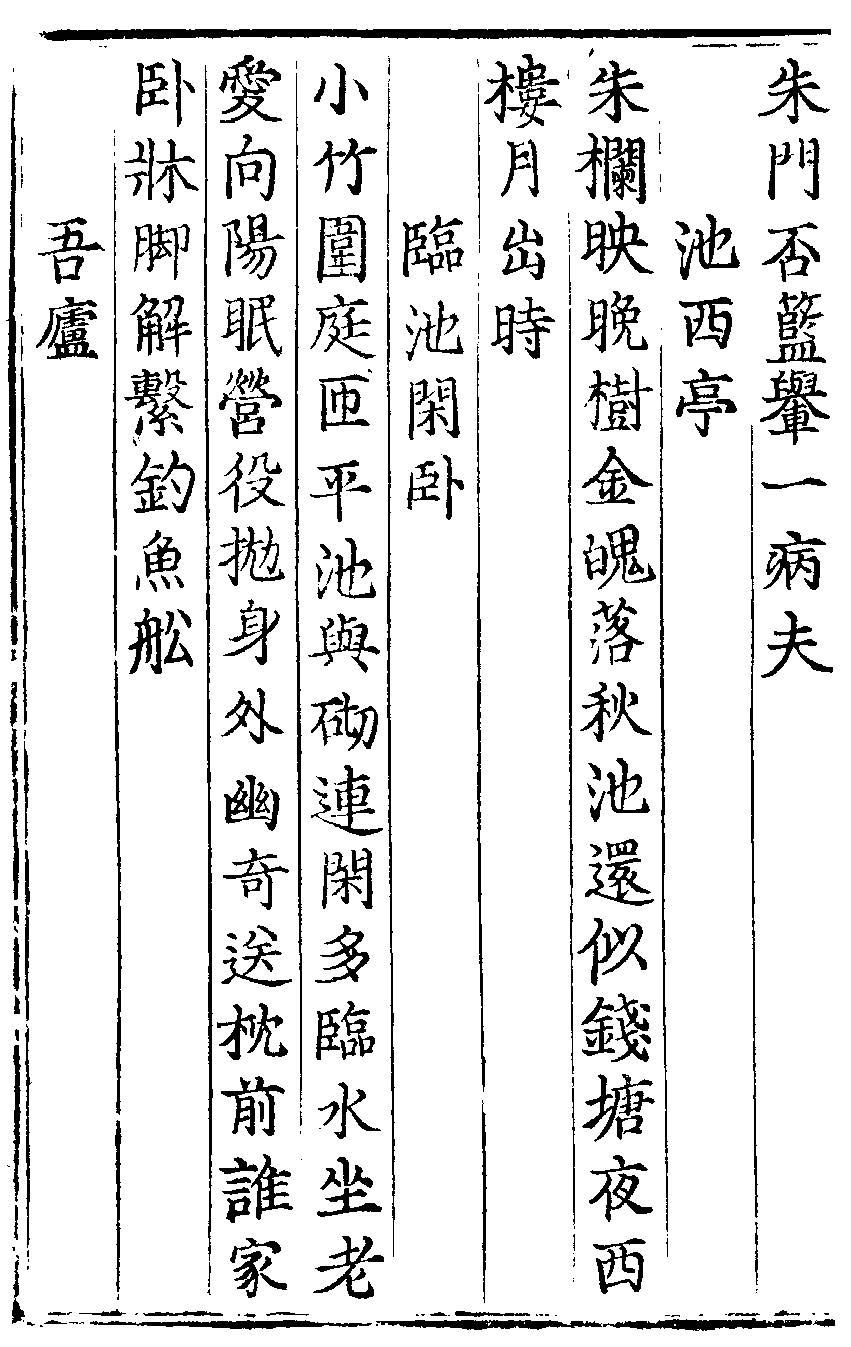 朱門否籃轝一病夫
池西亭
朱欄映晚樹金魄落秋池還似錢塘夜西
樓月出時
臨池閑卧
小竹圍庭匝平池與砌連閑多臨水坐老
愛向陽眠營役拋身外幽奇送枕前誰家
卧牀脚解繫釣魚舩
吾廬